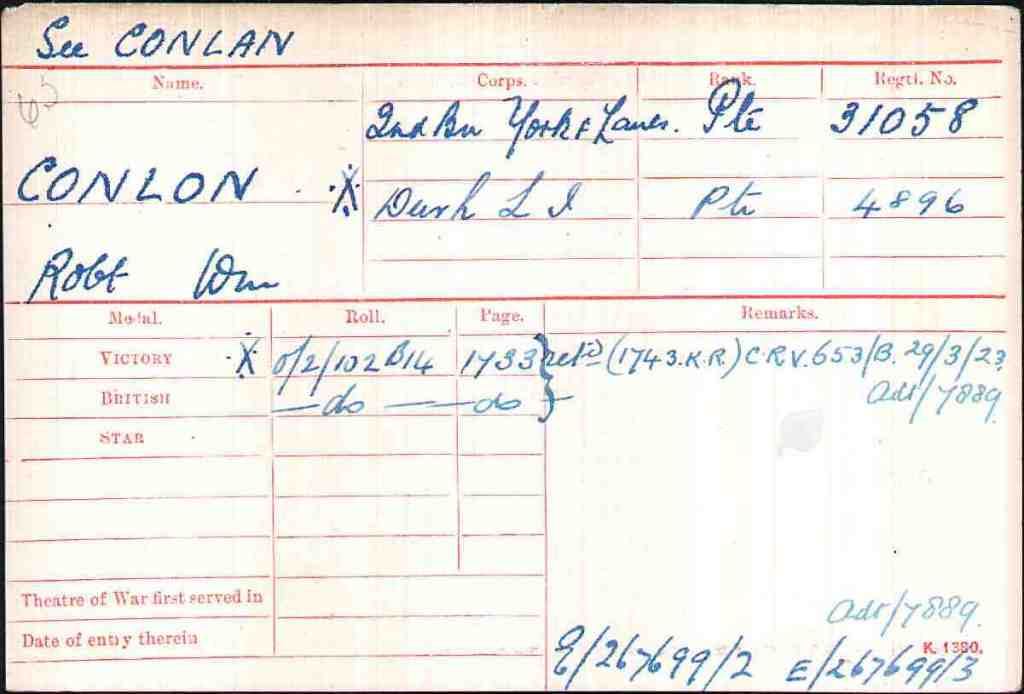 See CONLAN
65
Name. Corps. Rank. Regtl. No.
2nd Bn York & Lancs. Pte 31058
CONLON X Durh L I Pte 4896
Robt Wm
Medal. Roll. Page. Remarks.
VICTORY X O/2/102 B14 1733 retd (1743.K.R.) C.R.V. 653/B. 29/3/23
BRITISH —do— —do Adt/7889
STAR
Theatre of War first served in
Adt/7889.
Date of entry therein
K. 1380.
E/267699/2 E/267699/3